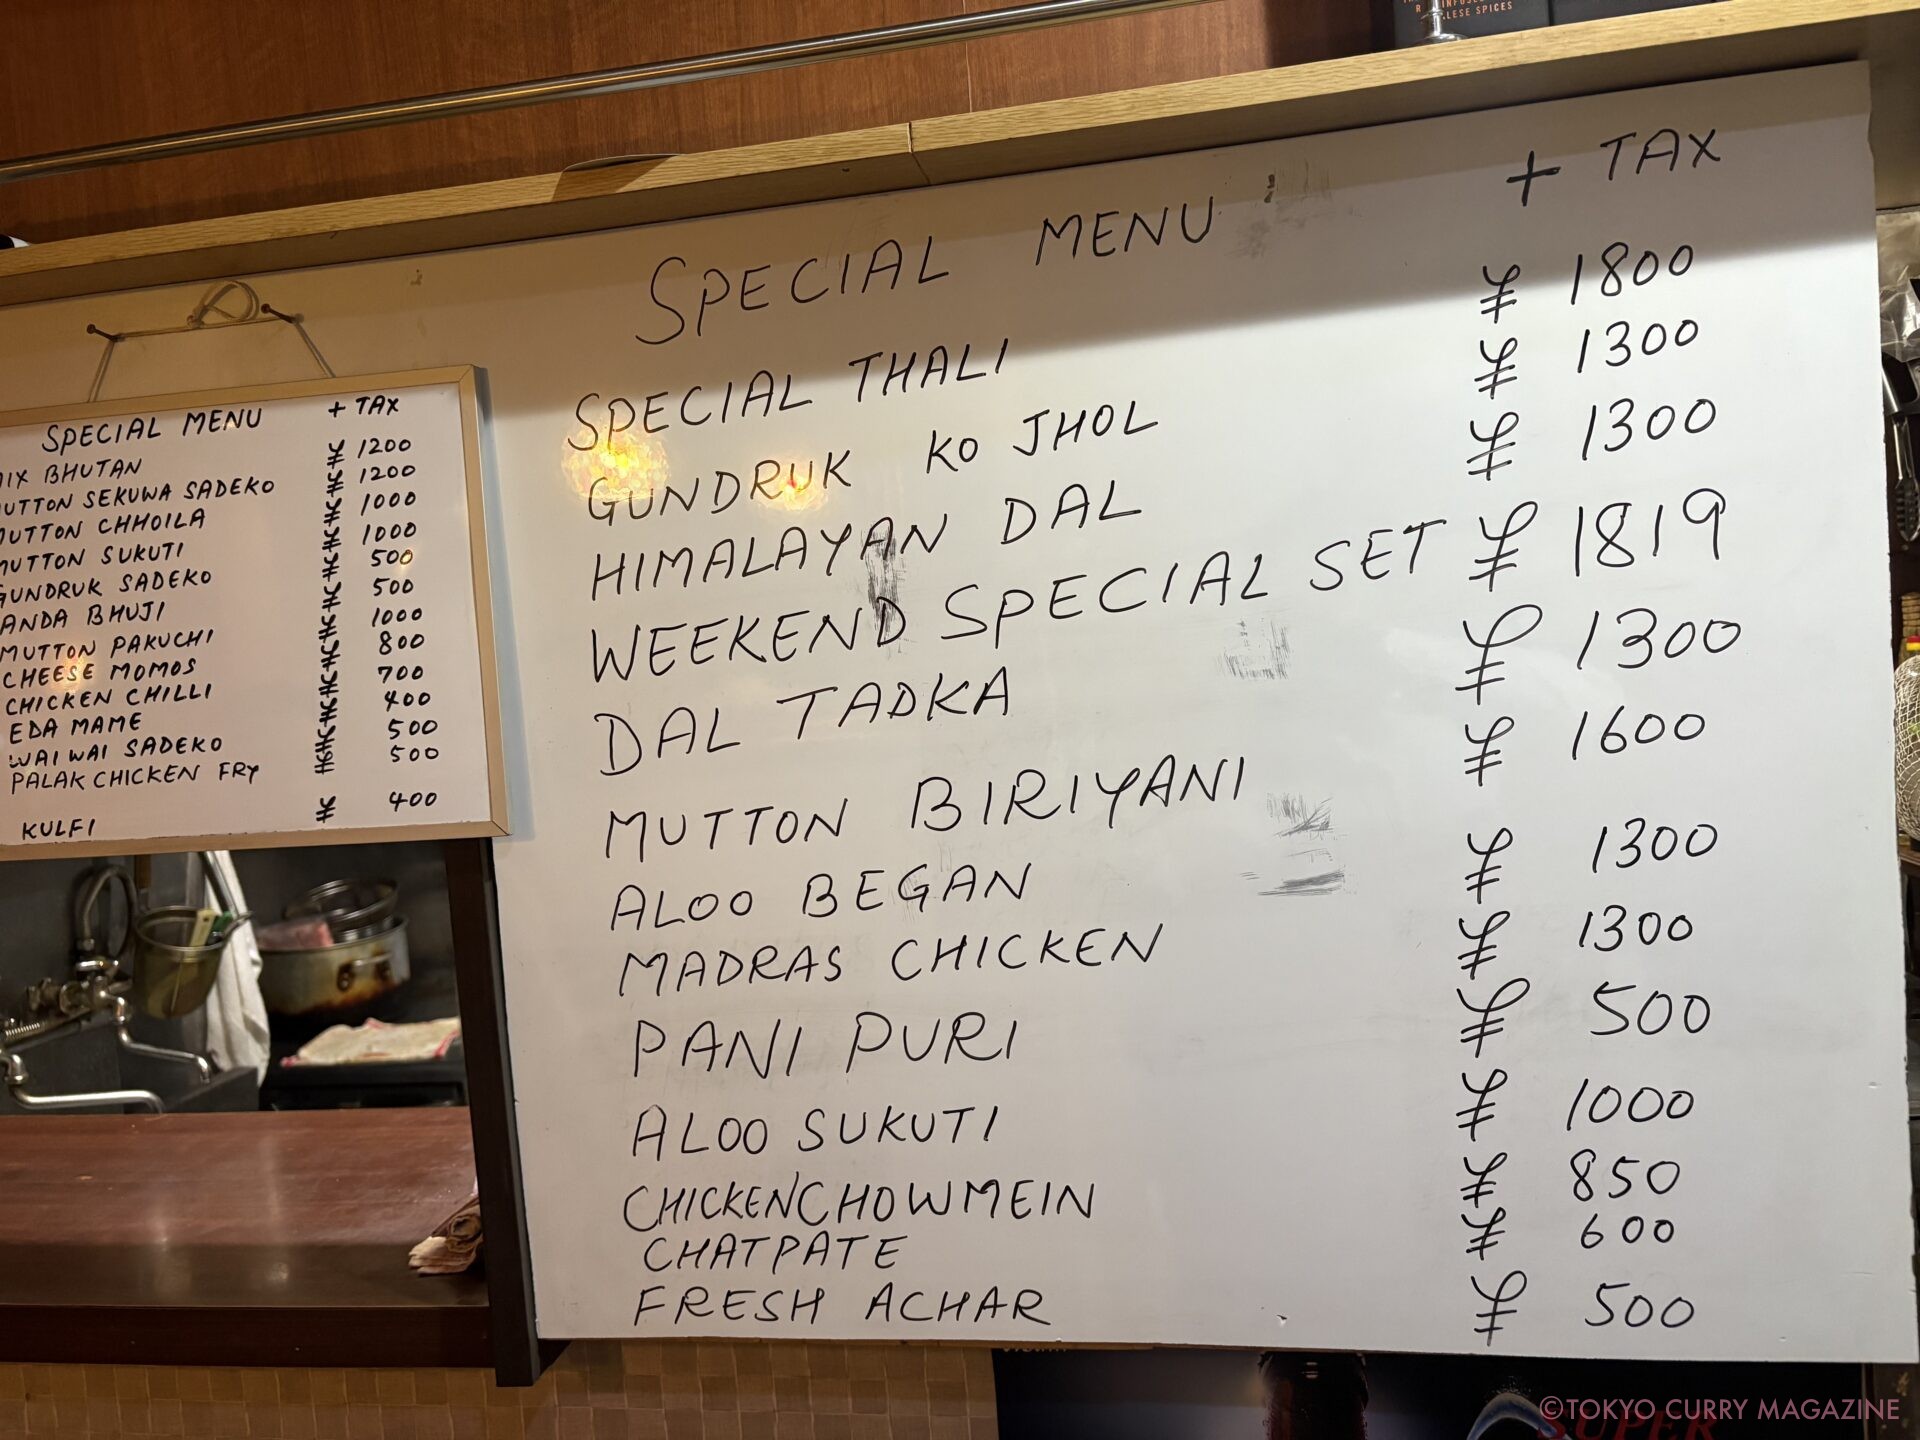 LESE SPICES
SPECIAL MENU + TAX
MIX BHUTAN ¥ 1200
MUTTON SEKUWA SADEKO ¥ 1200
MUTTON CHHOILA ¥ 1000
MUTTON SUKUTI ¥ 1000
GUNDRUK SADEKO ¥ 500
ANDA BHUJI ¥ 500
MUTTON PAKUCHI ¥ 1000
CHEESE MOMOS ¥ 800
CHICKEN CHILLI ¥ 700
EDA MAME ¥ 400
WAI WAI SADEKO ¥ 500
PALAK CHICKEN FRY ¥ 500
KULFI ¥ 400
SPECIAL MENU + TAX
SPECIAL THALI ¥ 1800
GUNDRUK KO JHOL ¥ 1300
HIMALAYAN DAL ¥ 1300
WEEKEND SPECIAL SET ¥ 1819
DAL TADKA ¥ 1300
MUTTON BIRIYANI ¥ 1600
ALOO BEGAN ¥ 1300
MADRAS CHICKEN ¥ 1300
PANI PURI ¥ 500
ALOO SUKUTI ¥ 1000
CHICKEN CHOWMEIN ¥ 850
CHATPATE ¥ 600
FRESH ACHAR ¥ 500
©TOKYO CURRY MAGAZINE
SUPER